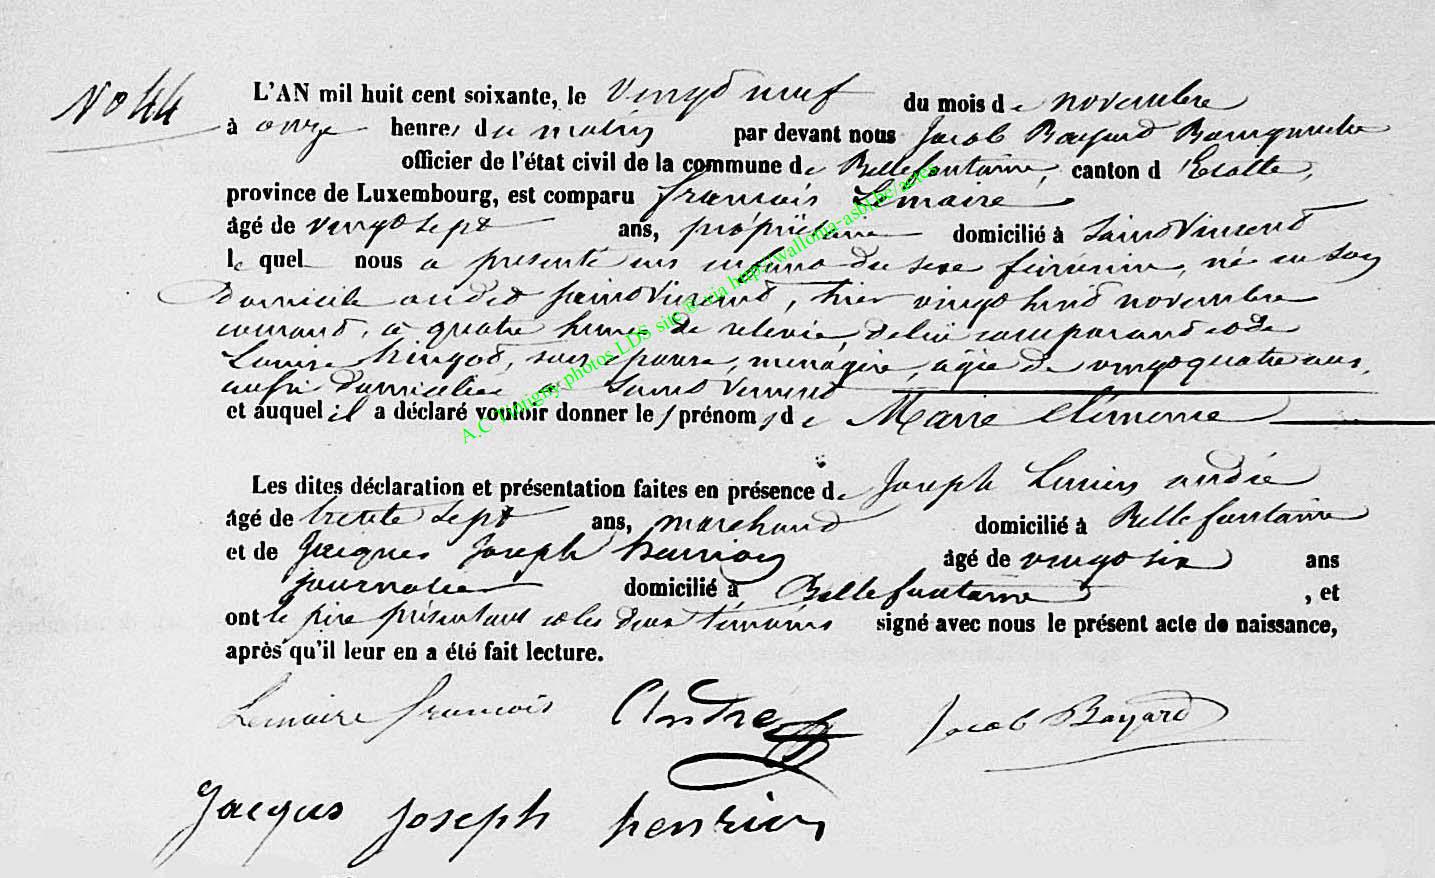 No 44
L'AN mil huit cent soixante, le Vingt neuf du mois de novembre
à onze heures du matin par devant nous Jacob Bayard Bourgmestre
officier de l'état civil de la commune de Bellefontaine, canton d'Etalle,
province de Luxembourg, est comparu françois Lemaire
âgé de vingt sept ans, propriétaire domicilié à Saint Vincent
lequel nous a présenté un enfant du sexe féminin, né en son
domicile audit Saint Vincent, hier vingt huit novembre
courant, à quatre heures de relevée, de lui comparant et de
Louise hingot, son épouse, ménagère, âgée de vingt quatre ans,
aussi domiciliée à Saint Vincent
et auquel il a déclaré vouloir donner les prénoms de Marie Clémence
Les dites déclaration et présentation faites en présence de Joseph Lucien andré
âgé de trente sept ans, marchand domicilié à Bellefontaine
et de Jacques Joseph henrion âgé de vingt six ans
journalier domicilié à Bellefontaine, et
ont le père présentant et les deux témoins signé avec nous le présent acte de naissance,
après qu'il leur en a été fait lecture.
Lemaire françois André Jacob Bayard
Jacques Joseph henrion
A.C. Tintigny photos LDS site © via http://wallonia-asbl.be/actes